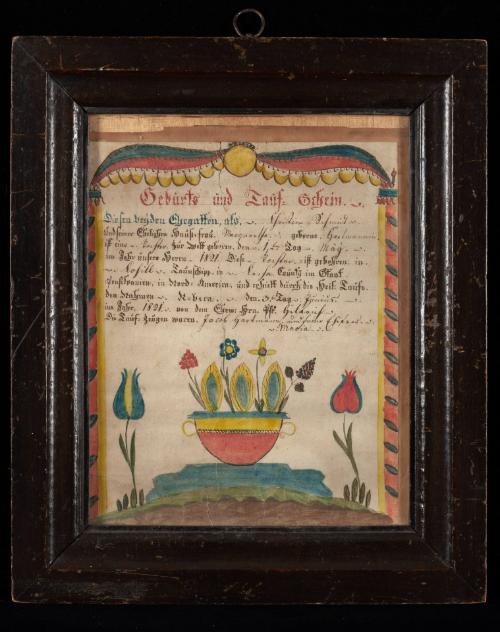 Geburts und Tauf Schein.
Diesen beyden Ehegatten, als, Schmidt
und seiner Ehelichen Haus-frau, Margaretha, geborne Hartmannin
ist eine Tochter zur Welt geboren, den 1ten Tag May.
im Jahr unsers Herrn 1821 Diese Tochter ist geboren in
Taunschip, in County im Staat
Penselvanien, in Nord America, und erhielt durch die Heil Taufe.
den Nahmen Rebera den 3 Tag
im Jahr. 1821. von dem Ehrw: Hrn Pf.
Die Tauf zeugen waren. Jacob Hartmann, und seine
Maria